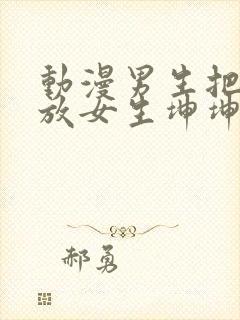 動漫男生把
放女生坤坤
郝勇